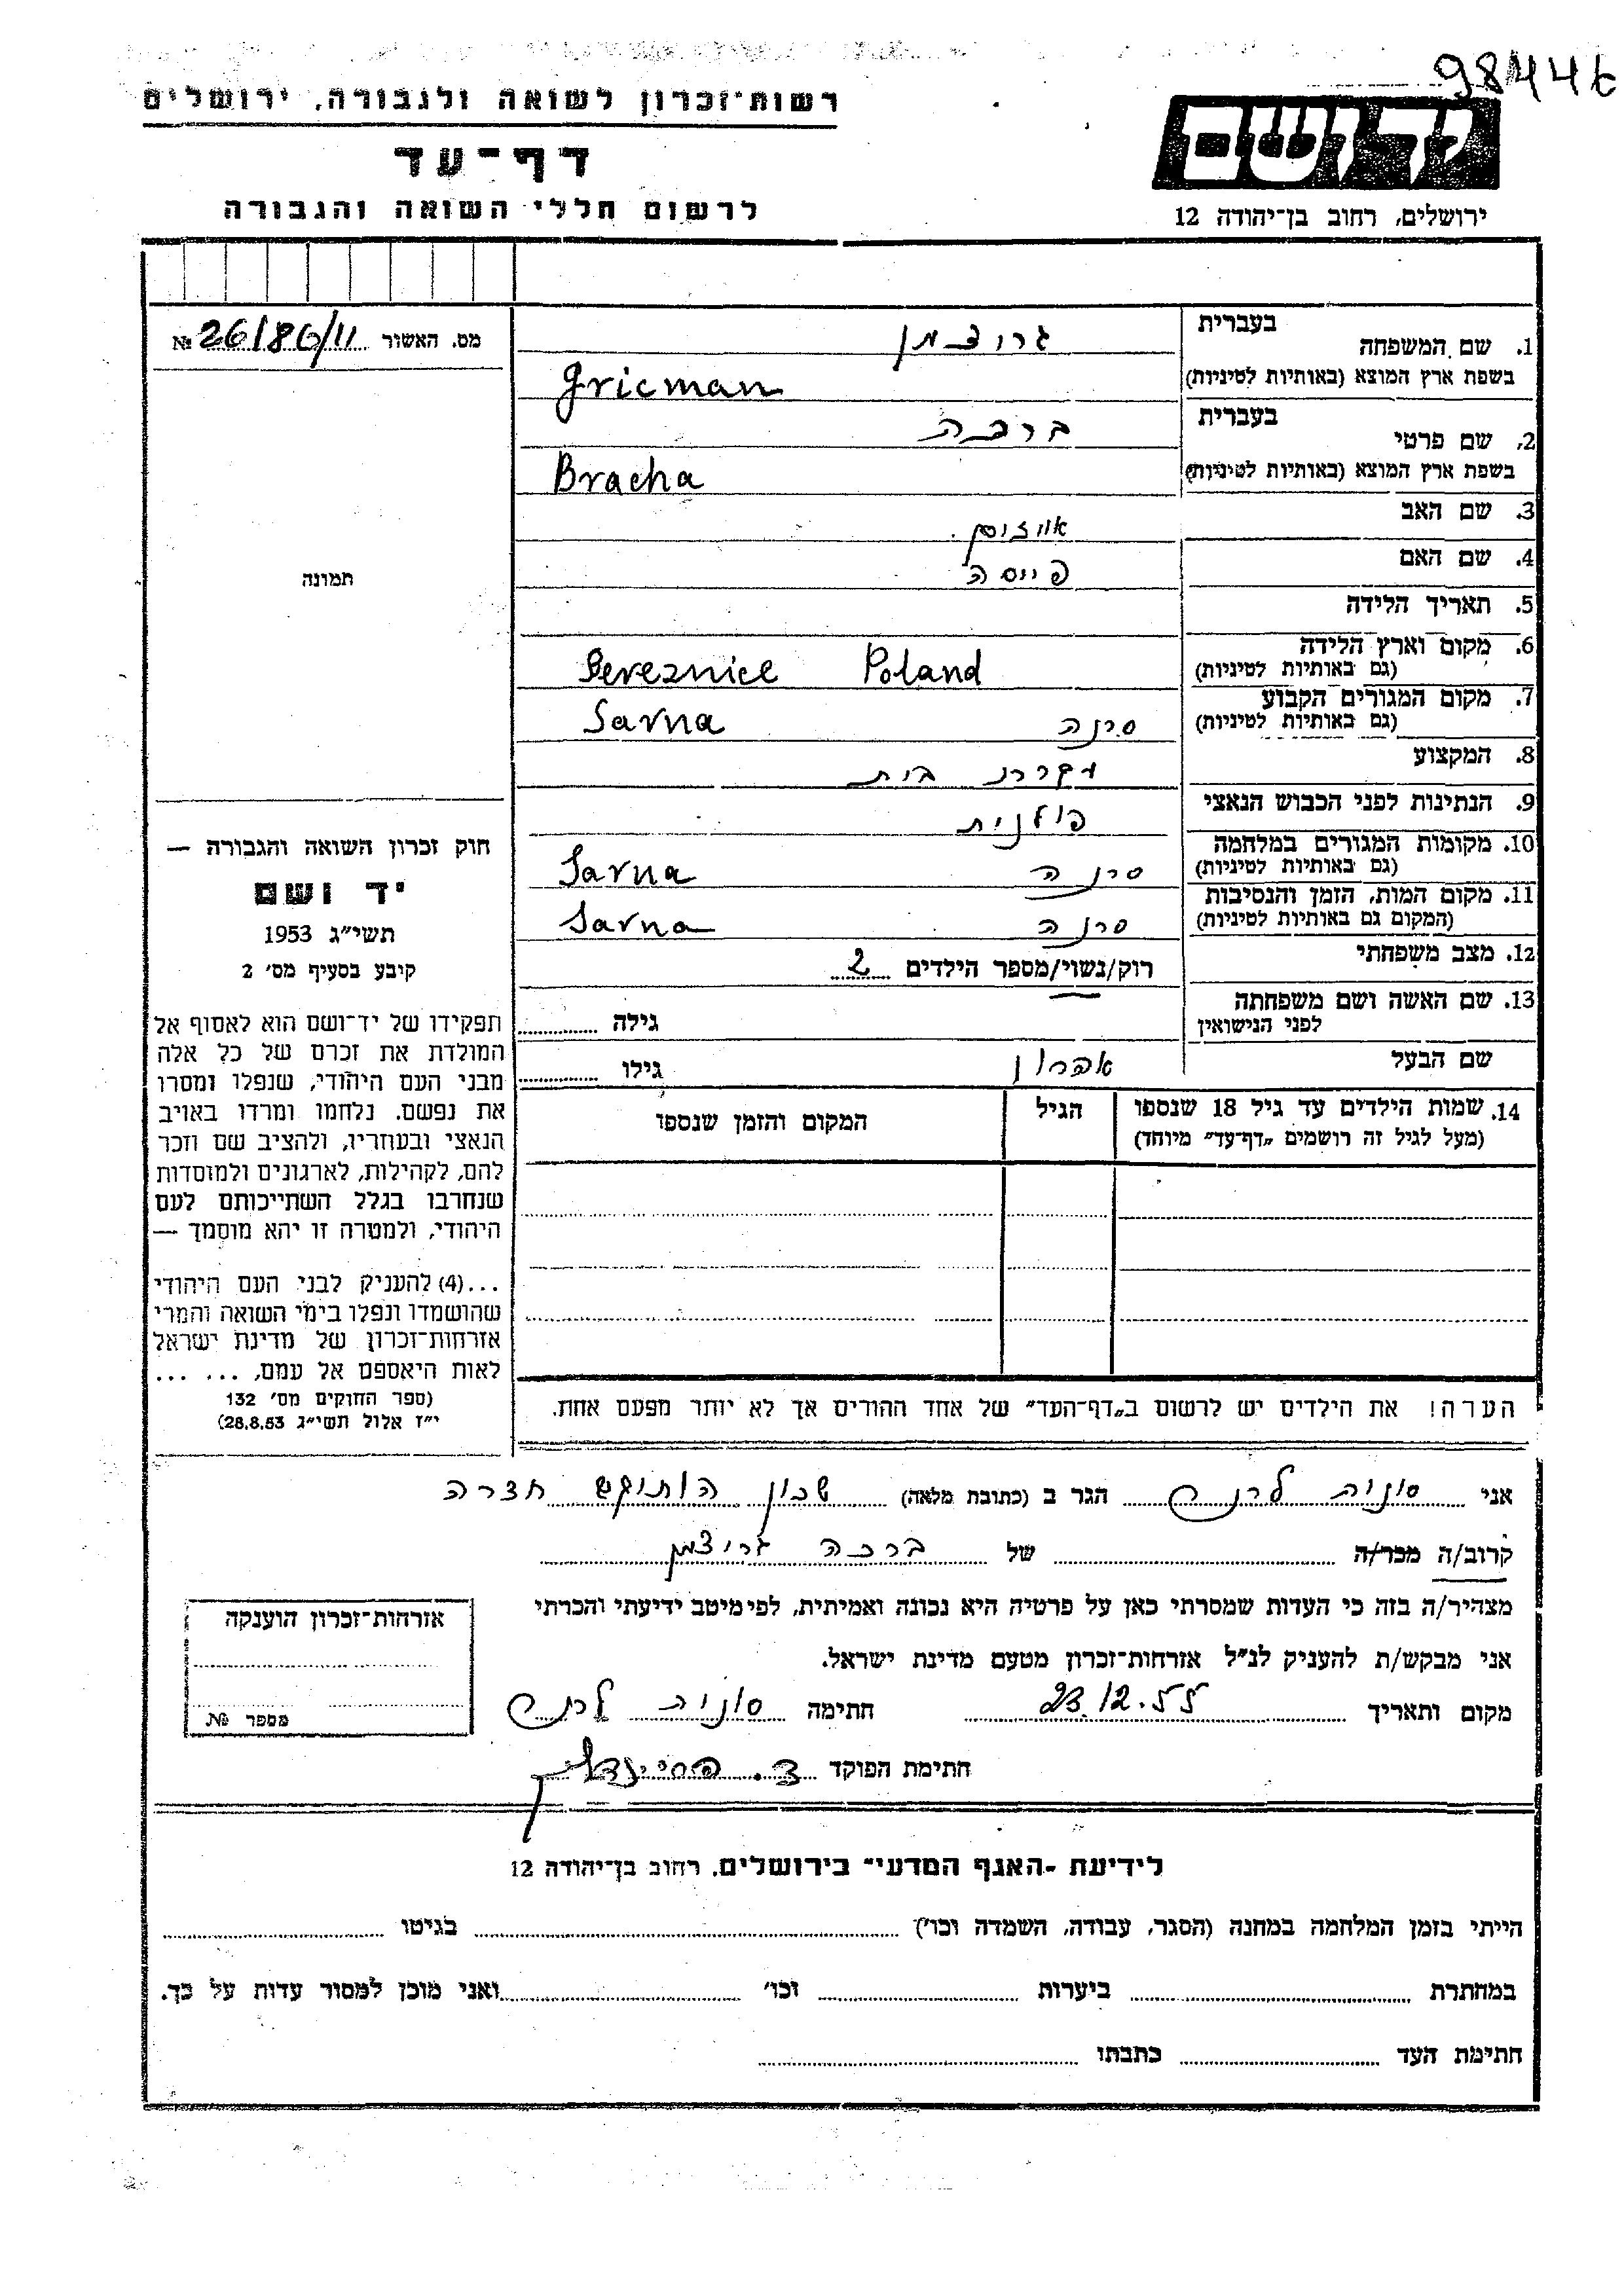 98446
רשות־זכרון לשואה ולגבורה, ירושלים
דף־עד
לרשום חללי השואה והגבורה
יד ושם
ירושלים, רחוב בן־יהודה 12
מס. האשור № 26/86/11
תמונה
1. שם המשפחה בעברית גרוצמן
בשפת ארץ המוצא (באותיות לטיניות) Gricman
2. שם פרטי בעברית ברכה
בשפת ארץ המוצא (באותיות לטיניות) Bracha
3. שם האב
4. שם האם פייסה
5. תאריך הלידה
6. מקום וארץ הלידה (גם באותיות לטיניות) Bereznice Poland
7. מקום המגורים הקבוע (גם באותיות לטיניות) סרנה Sarna
8. המקצוע עקרת בית
9. הנתינות לפני הכבוש הנאצי פולנית
10. מקומות המגורים במלחמה (גם באותיות לטיניות) סרנה Sarna
11. מקום המות, הזמן והנסיבות (המקום גם באותיות לטיניות) סרנה Sarna
12. מצב משפחתי רוק/נשוי/מספר הילדים 2
13. שם האשה ושם משפחתה לפני הנישואין גילה
שם הבעל אהרון גילו
14. שמות הילדים עד גיל 18 שנספו (מעל לגיל זה רושמים „דף־עד" מיוחד) הגיל המקום והזמן שנספו
הערה! את הילדים יש לרשום ב„דף־העד" של אחד ההורים אך לא יותר מפעם אחת.
חוק זכרון השואה והגבורה —
יד ושם
תשי"ג 1953
קיבע בסעיף מס' 2
תפקידו של יד־ושם הוא לאסוף אל
המולדת את זכרם של כל אלה
מבני העם היהודי, שנפלו ומסרו
את נפשם, נלחמו ומרדו באויב
הנאצי ובעוזריו, ולהציב שם וזכר
להם, לקהילות, לארגונים ולמוסדות
שנחרבו בגלל השתייכותם לעם
היהודי, ולמטרה זו יהא מוסמך —
...(4) להעניק לבני העם היהודי
שהושמדו ונפלו בימי השואה והמרי
אזרחות־זכרון של מדינת ישראל
לאות היאספם אל עמם, ... ...
(ספר החוקים מס' 132
י"ז אלול תשי"ג 28.8.53)
אני סוניה הגר ב (כתובת מלאה) שכון הותיקים חדרה
קרוב/ה מכר/ה של ברכה גרוצמן
מצהיר/ה בזה כי העדות שמסרתי כאן על פרטיה היא נכונה ואמיתית, לפי מיטב ידיעתי והכרתי
אני מבקש/ת להעניק לנ"ל אזרחות־זכרון מטעם מדינת ישראל.
מקום ותאריך 23.12.55 חתימה סוניה
חתימת הפוקד
אזרחות־זכרון הוענקה
מספר №
לידיעת -האגף המדעי" בירושלים, רחוב בן־יהודה 12
הייתי בזמן המלחמה במחנה (הסגר, עבודה, השמדה וכו') בגיטו
במחתרת ביערות וכו' ואני מוכן למסור עדות על כך.
חתימת העד כתבתו